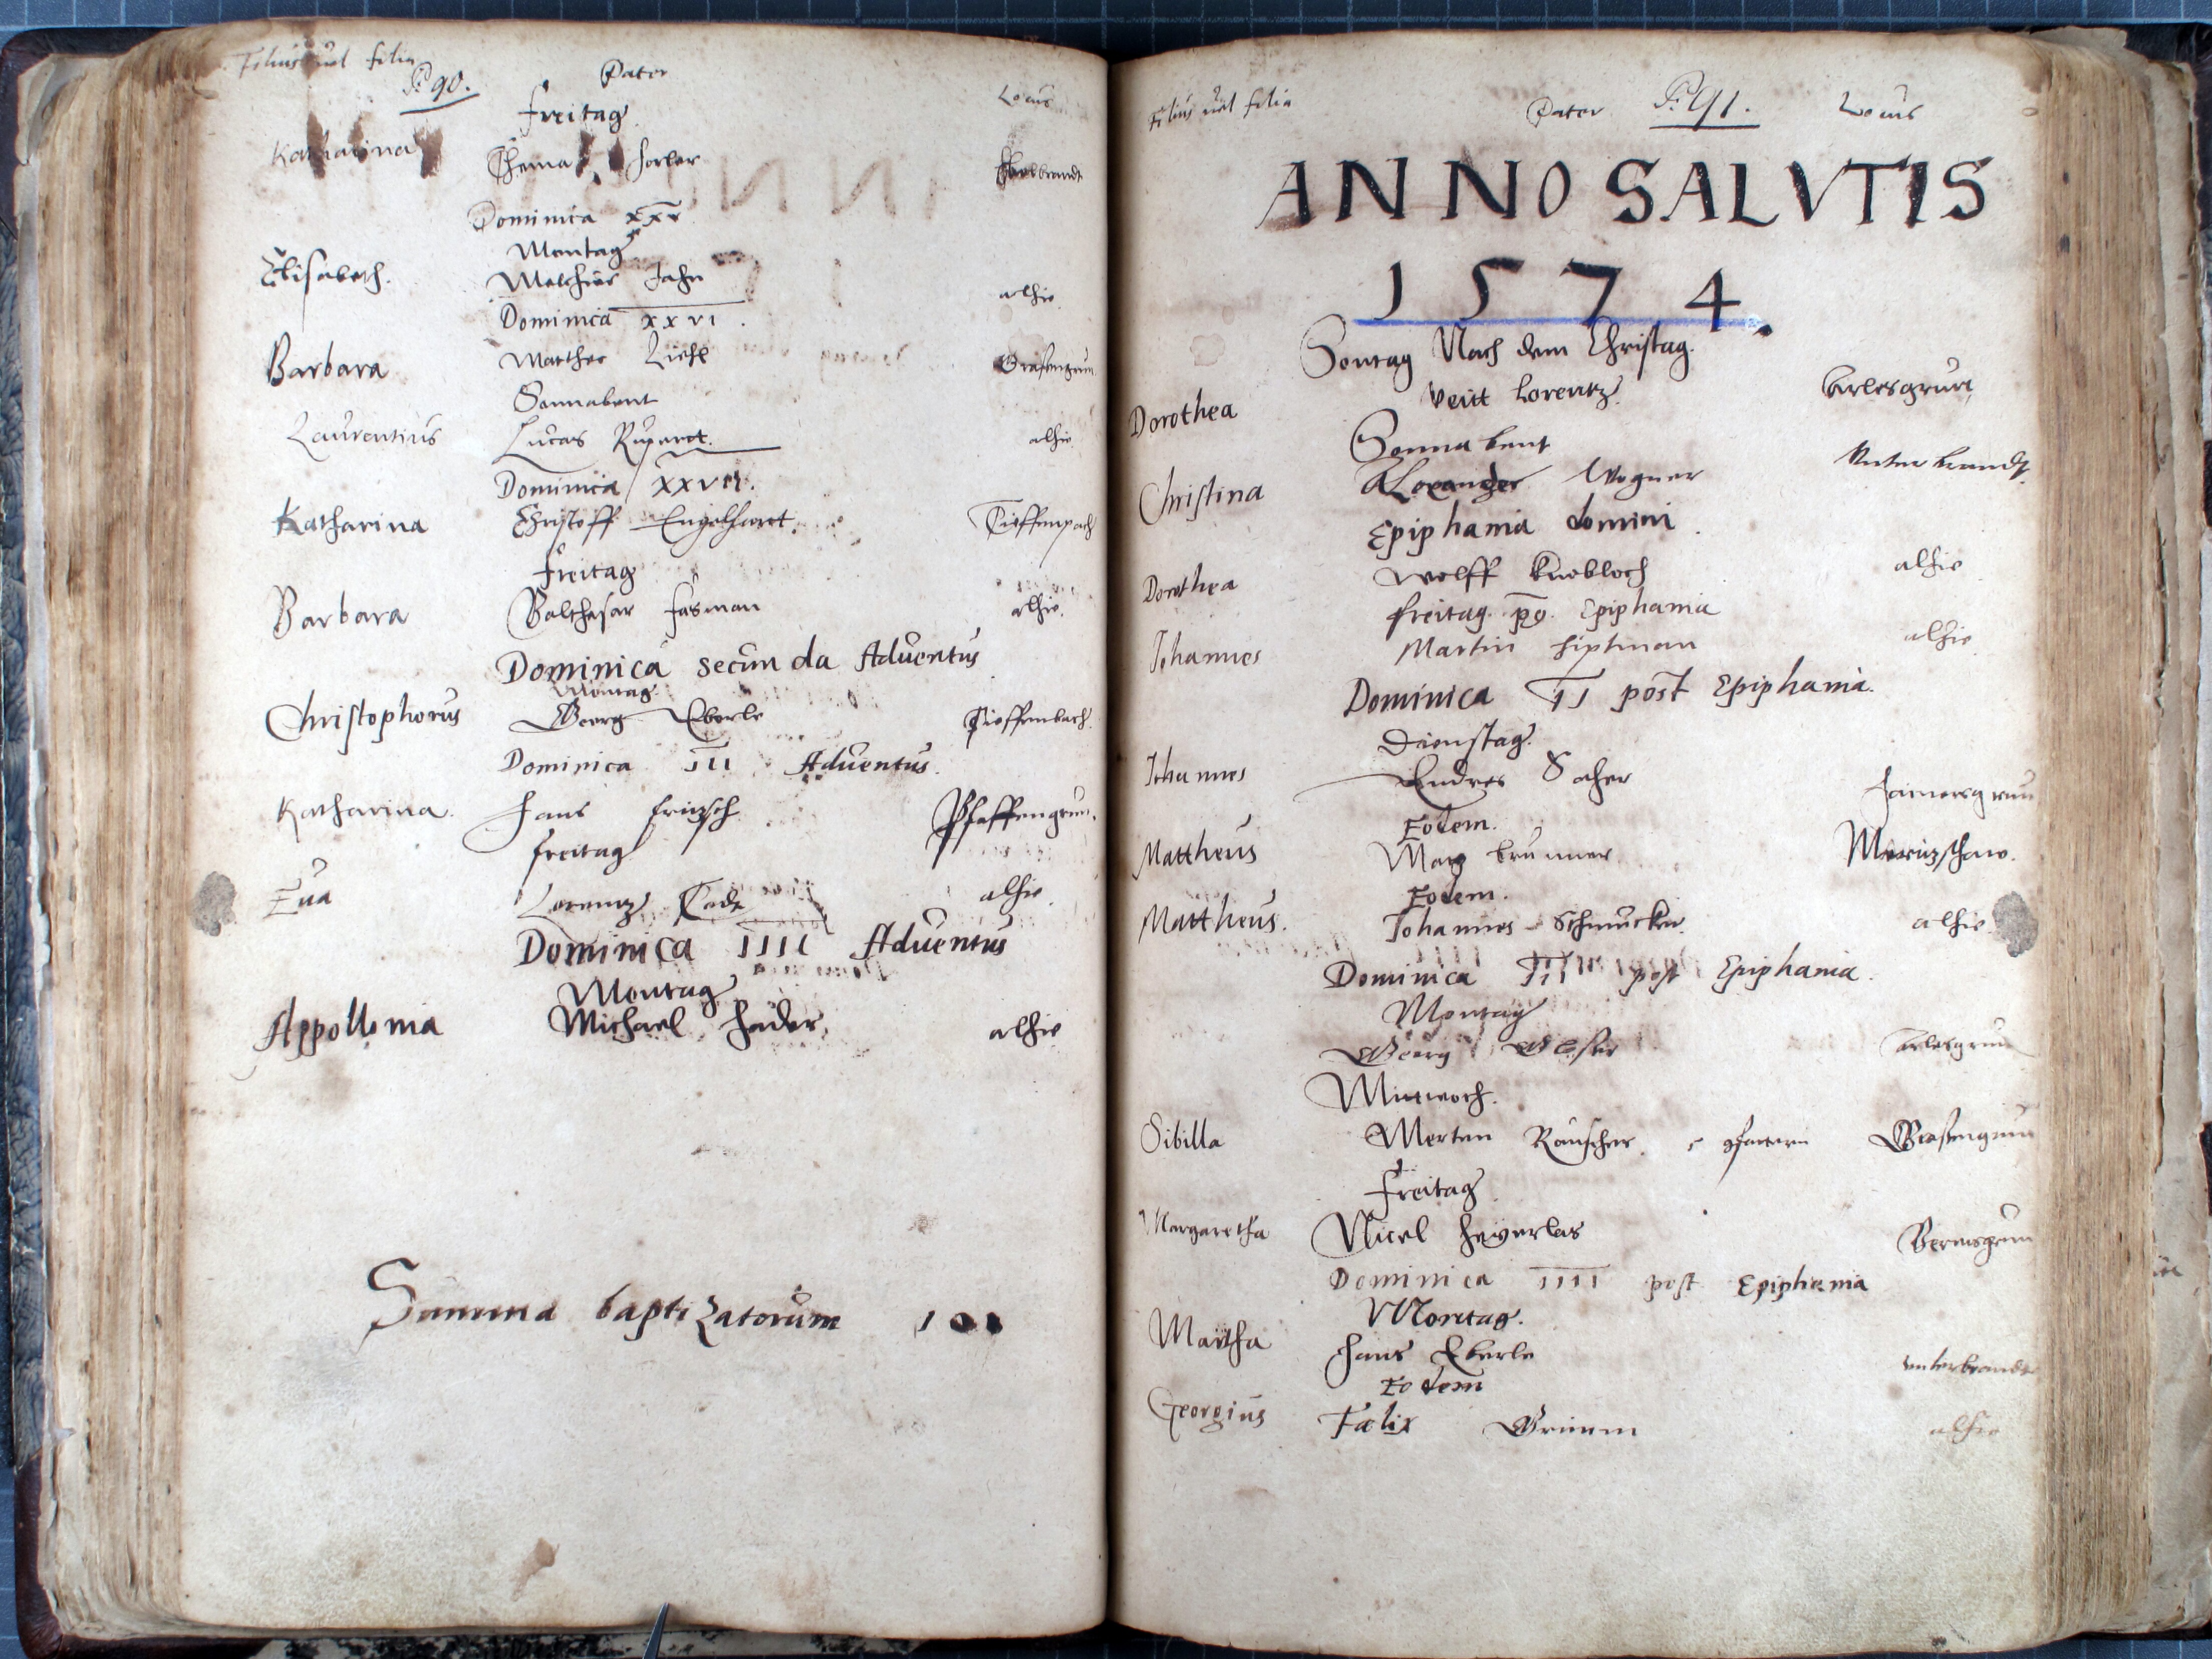 Filius vel filia Pater Locus
P. 90.
Freitag
Katharina Thoma
Dominica xxv
Montag
Elisabeth. Melchior Jahn alhie
Dominica xxvi.
Barbara Matthes Liehl Grasengrun
Sonnabent
Laurentius Lucas Ruppert. alhie
Dominica xxvii.
Katharina Christoff Engelhart. Tieffenpach
Freitag
Barbara Balthasar Fasman alhie.
Dominica secunda Adventus
Montag
Christophorus Georg Eberle Tieffenbach.
Dominica III Adventus.
Katharina. Hans Fritzsch Pfaffengrun.
Freitag
Eva Lorentz alhie.
Dominica IIII Adventus
Montag
Appollonia Michael Hader, alhie
Summa baptizatorum
Filius vel filia Pater P. 91. Locus
ANNO SALVTIS
1574.
Sontag Nach dem Christag.
Dorothea Veitt Lorentz Arlesgrun
Sonnabent
Christina Alexander Wagner Unterbrandt
Epiphania domini.
Dorothea Wolff Knobloch alhie
Freitag po. Epiphania
Johannes Martin Hiptman alhie
Dominica II post Epiphania.
Dienstag.
Johannes Endres Haimersgrun
Eodem.
Mattheus Marx Brunner
Eodem.
Mattheus. Johannes Schmucker. alhie
Dominica III post Epiphania.
Montag
Georg Arlesgrun
Mitwoch.
Sibilla Merten Rauscher. Grasengrun
Freitag
Margaretha Nicel Heyerlas Bernsgrun
Dominica IIII post Epiphania
Montag.
Martha Hans Eberle unterbrandt
Eodem
Georgius Fælix Grimm alhie